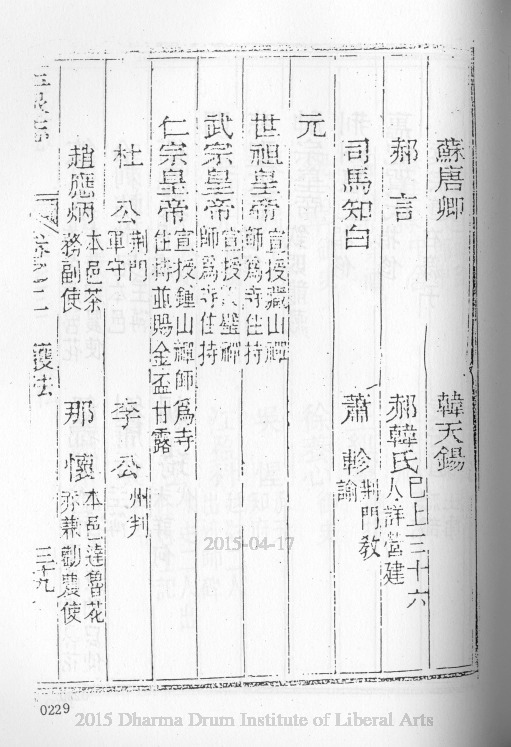 蘇唐卿 韓天錫
郝言 郝韓氏 已上三十六人詳營建
司馬知白 蕭軫 荆門教諭
元
世祖皇帝 宣授藏山禪師為寺住持
武宗皇帝 宣授璧禪師為寺住持
仁宗皇帝 宣授鍾山禪師為寺住持並賜金盃甘露
杜公 荆門軍守 李公 州判
趙應炳 本邑茶務副使 那懷 本邑達魯花赤兼勸農使
志 卷之二 護法 三十九
2015-04-17
0229
2015 Dharma Drum Institute of Liberal Arts